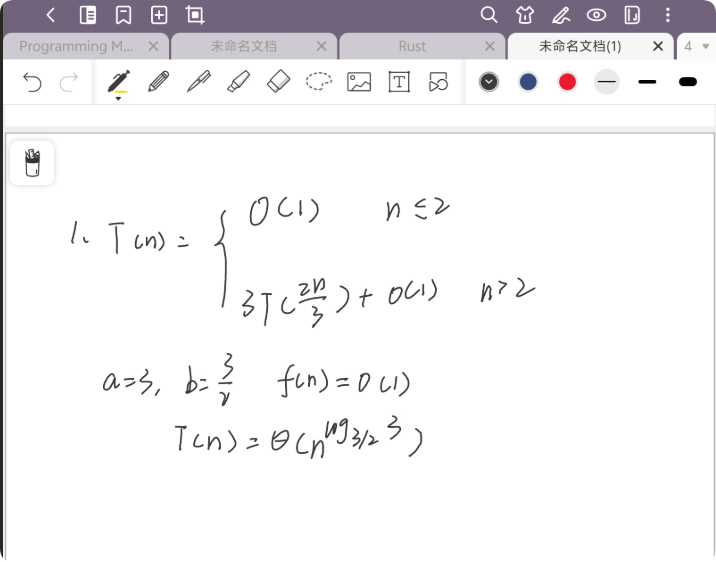 Programming M... × 未命名文档 × Rust × 未命名文档(1) × 4
1. T(n) = { O(1) n ≤ 2
3T(2n/3) + O(1) n > 2
a=3, b=3/2 f(n) = O(1)
T(n) = Θ(n^log_{3/2} 3)